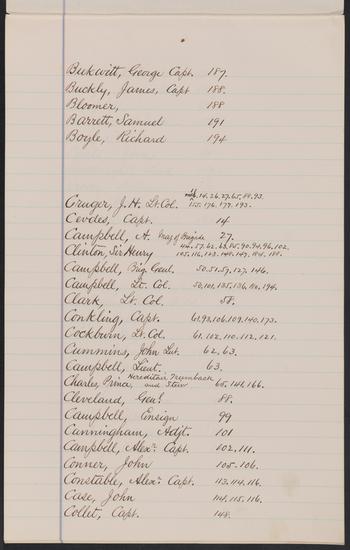 Beckwitt, George Capt. 187.
Buckly, James, Capt 188.
Bloomer, 188
Barrett, Samuel 191
Boyle, Richard 194
14.26.27.65.88.93.
Cruger, J.H. Lt. Col. 115.176.179.193.
Cevdes, Capt. 14.
Campbell, A. Maj of Brigade 27.
Clinton, Sir Henry
Campbell, Brig. Genl. 50.51.59.127.146.
Campbell, Lt. Col. 50.101.105.136.
Clark, Lt. Col. 58.
Conkling, Capt. 61.93.106.109.140.173.
Cockburn, Lt. Col. 61.102.110.112.121.
Cummins, John Lut. 62.63.
Campbell, Lieut. 63.
Hereditair Trumbach
Charles, Prince, and Stew 65.142.166.
Cleveland, Genl. 88.
Campbell, Ensign 99
Cunningham, Adjt. 101
Campbell, Alexr. Capt. 102.111.
Conner, John 105-106.
Constable, Alexr. Capt. 113.114.116.
Case, John 114.115.116.
Collet, Capt. 148.